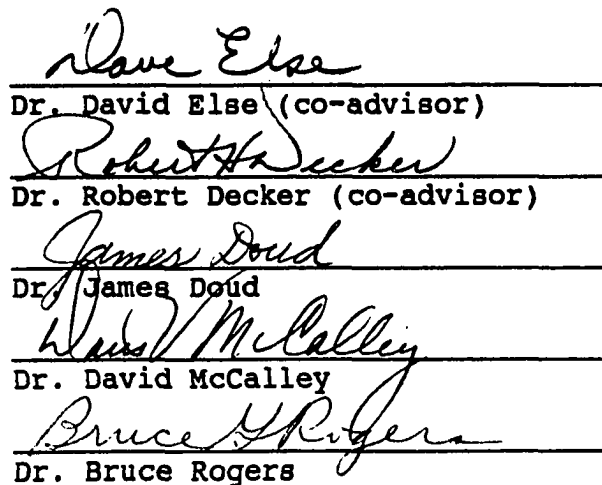 Dave Else
Dr. David Else (co-advisor)
Robert H Decker
Dr. Robert Decker (co-advisor)
James Doud
Dr. James Doud
David V McCalley
Dr. David McCalley
Bruce G Rogers
Dr. Bruce Rogers